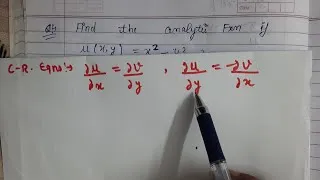 Q4 Find the analytic Fxn if
u(x,y) = x² - y²
C-R. Eqns:- ∂u/∂x = ∂v/∂y , ∂u/∂y = -∂v/∂x